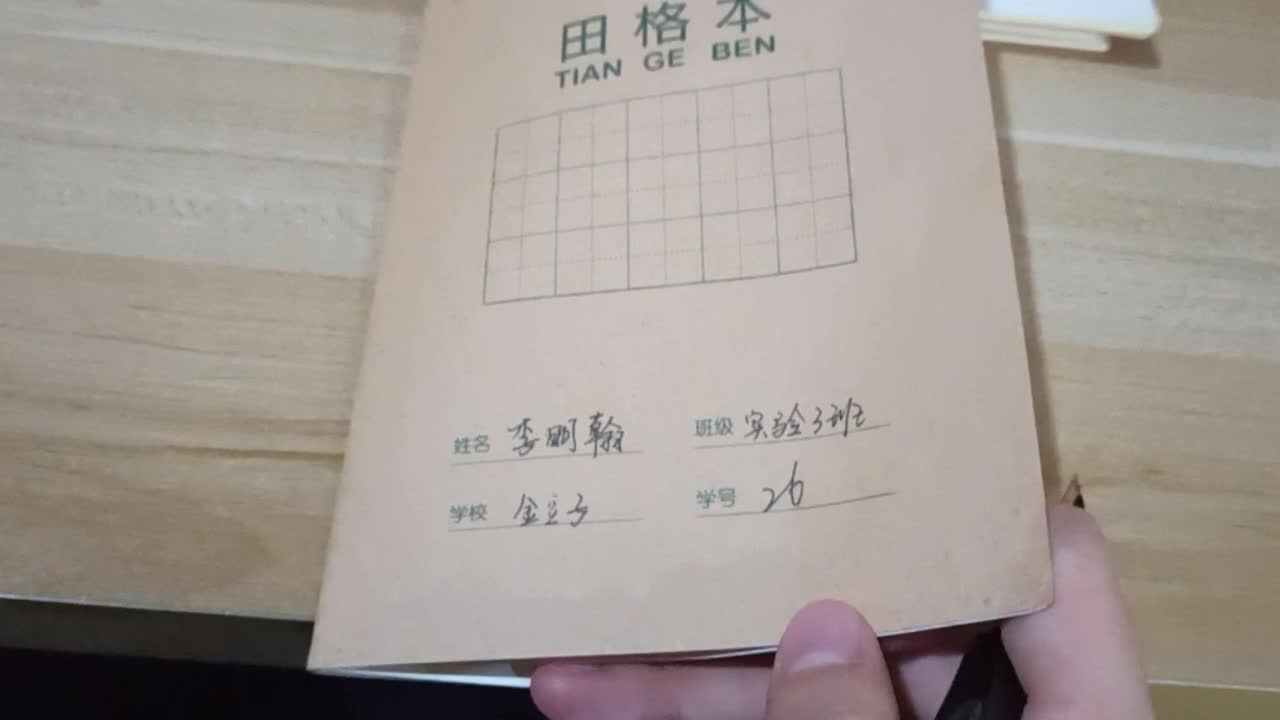 田格本
TIAN GE BEN
姓名 李明翰 班级 实验3班
学校 学号 26